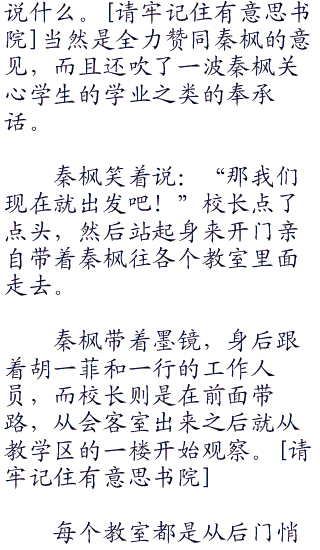 说什么。[请牢记住有意思书
院]当然是全力赞同秦枫的意
见，而且还吹了一波秦枫关
心学生的学业之类的奉承
话。
秦枫笑着说：“那我们
现在就出发吧！”校长点了
点头，然后站起身来开门亲
自带着秦枫往各个教室里面
走去。
秦枫带着墨镜，身后跟
着胡一菲和一行的工作人
员，而校长则是在前面带
路，从会客室出来之后就从
教学区的一楼开始观察。[请
牢记住有意思书院]
每个教室都是从后门悄